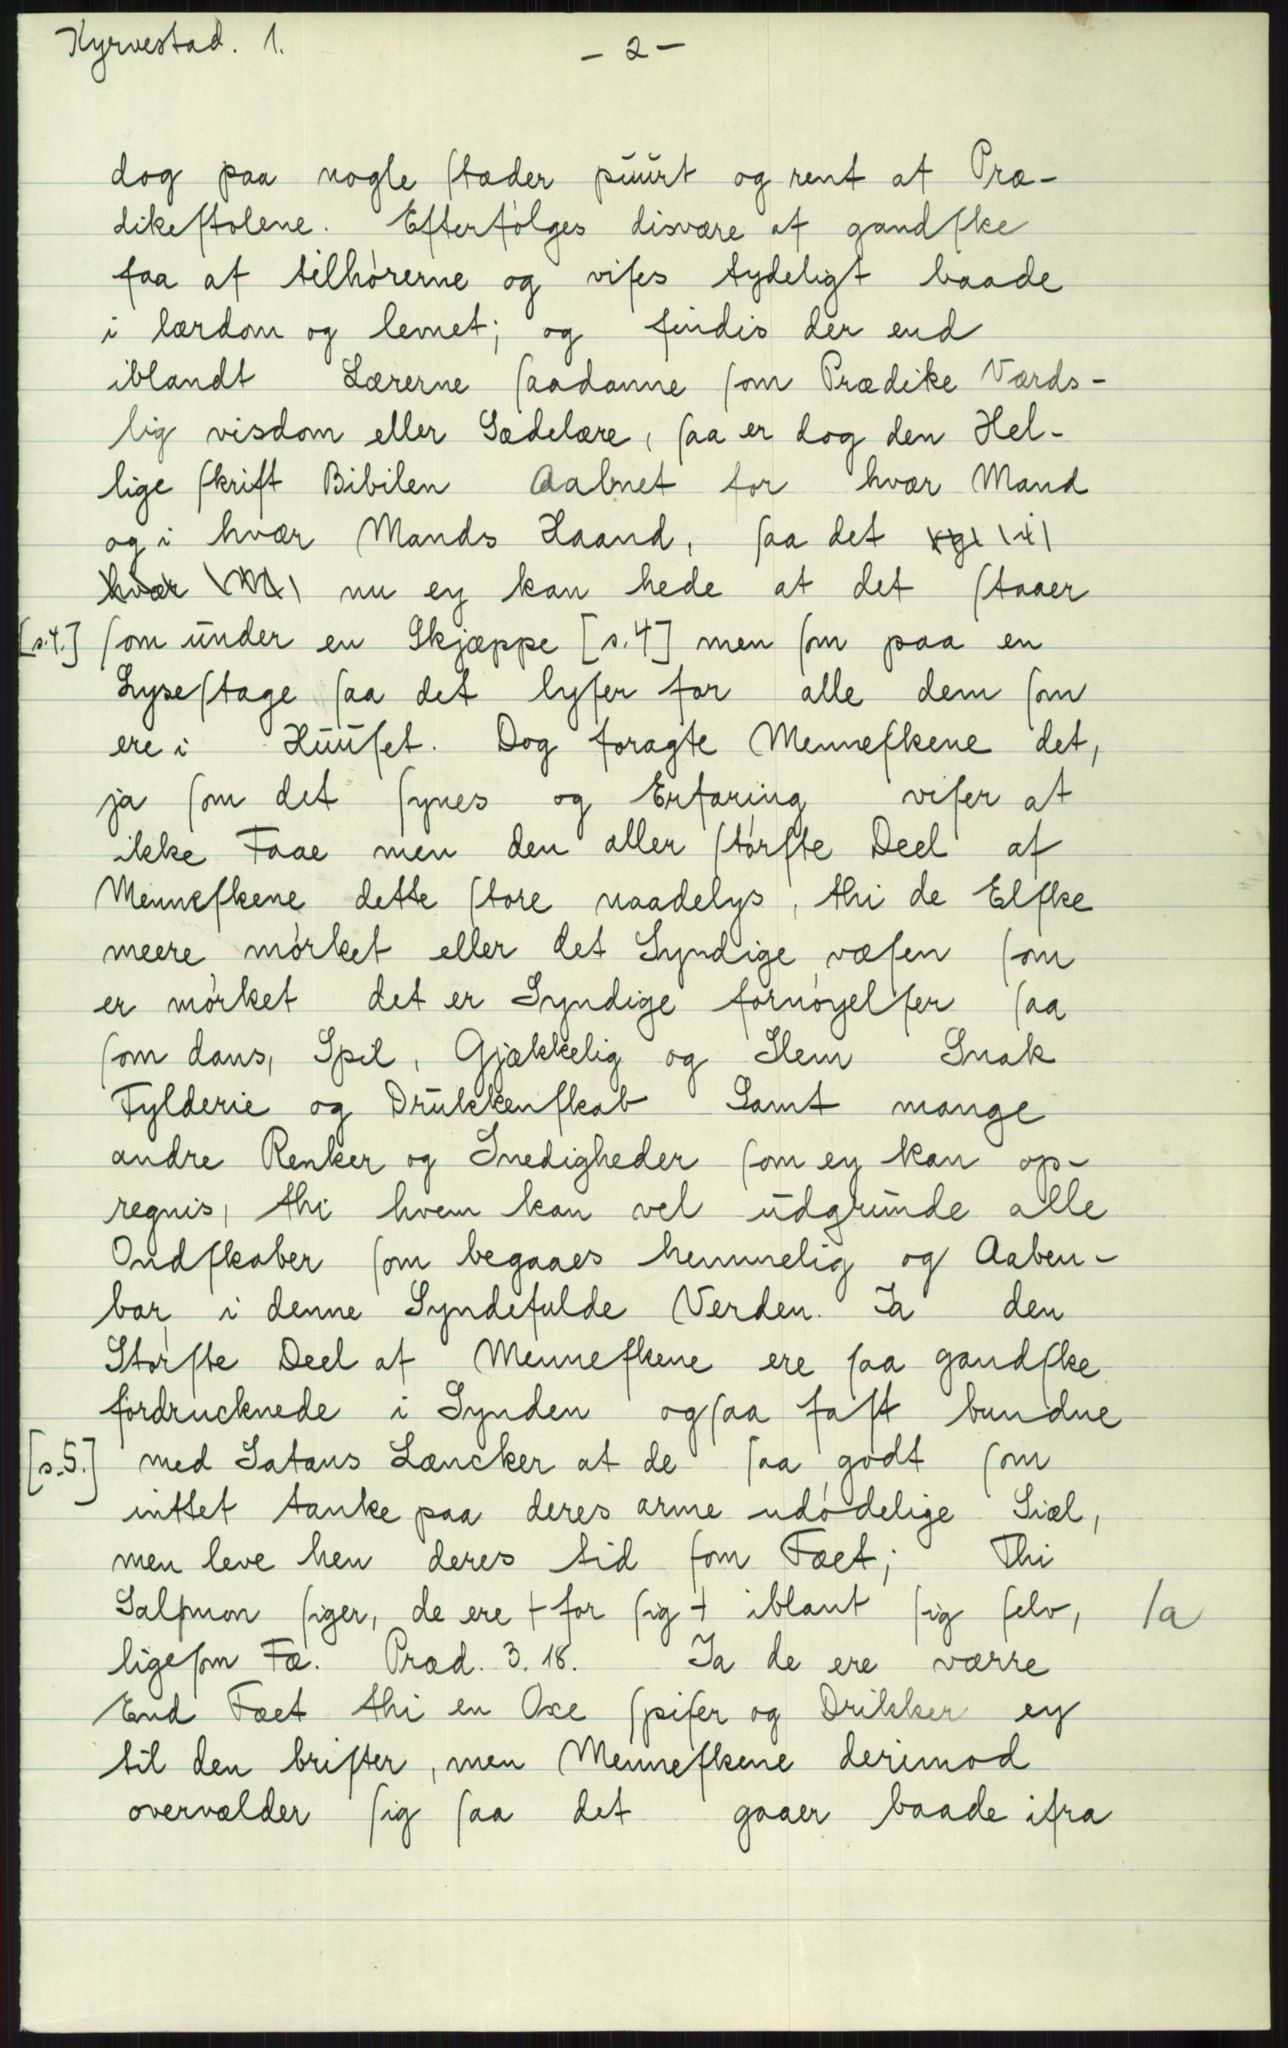 Kyrvestad. 1.
- 2 -
dog paa nogle ſtæder puurt og rent af Præ-
dikeſtolene. Efterfølges disvære af gandſke
faa af tilhørerne og viſes tydeligt baade
i lærdom og levnet; og findis der end
iblandt Lærerne ſaadanne ſom Prædike Værds-
lig visdom eller Sædelære, ſaa er dog den Hel-
lige ſkrift Bibilen Aabnet for hvær Mand
og i hvær Mands Haand, ſaa det og i
hvær M nu ey kan hede at det ſtaaer
[s.4.] ſom under en Skjæppe [s.4] men ſom paa en
Lyseſtage ſaa det lyſer for alle dem ſom
ere i Huuſet. Dog foragte Menneſkene det,
ja ſom det ſynes og Erfaring viſer at
ikke Faae men den aller ſtørſte Deel af
Menneſkene dette ſtore naadelys, thi de Elſke
meere mørket eller det Syndige væſen ſom
er mørket det er Syndige fornøyelſer ſaa
ſom dans, Spil, Gjækkelig og Slem Snak
Fylderie og Drukkenſkab Samt mange
andre Renker og Snedigheder ſom ey kan op-
regnis, thi hvem kan vel udgrunde alle
Ondſkaber ſom begaaes hemmelig og Aaben-
bar i denne Syndefulde Verden. Ja den
Størſte Deel af Menneſkene ere ſaa gandſke
fordrucknede i Synden og ſaa faſt bundne
[s.5.] med Satans Læncker at de ſaa godt ſom
inttet tanke paa deres arme udødelige Siæl,
men leve hen deres tid ſom Fæet; Thi
Salomon ſiger, de ere + for ſig + iblant ſig ſelv, /a
ligeſom Fæ. Præd. 3. 18. Ja de ere værre
End Fæet thi en Oxe ſpiſer og Drikker ey
til den briſter, men Menneſkene derimod
overvælder ſig ſaa det gaaer baade ifra